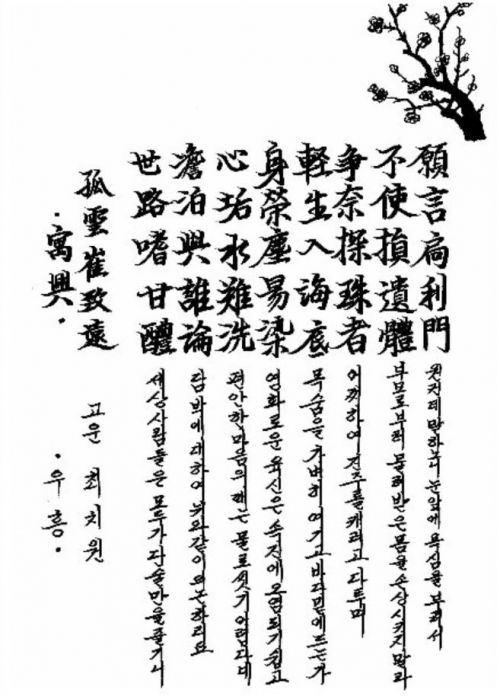 願言扃利門
不使損遺體
争奈探珠者
軽生入海底
身榮塵易染
心垢水難洗
澹泊與誰論
世路嗜甘醴
孤雲崔致遠
·寓興·
원컨대 말하노니 눈앞에 욕심을 부려서
부모로부터 물려받은 몸을 손상시키지 말라
어찌하여 진주를 캐려고 다투며
목숨을 가벼히 여기고 바다밑에 드는가
영화로운 육신은 속진에 오염되기 쉽고
편안한 마음의 때는 물로 씻기 어렵다네
담박에 대하여 뉘와같이 의논하리요
세상사람들은 모두가 단술만을 즐기니
고운 최치원
·우흥·